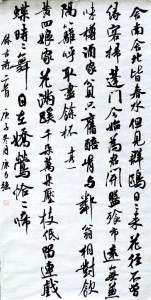 舍南舍北皆春水但見群鷗日日来花径不曾
緣客掃蓬門今始為君開盤飧市遠無兼
味樽酒家貧只舊醅肯與鄰翁相對飲
隔籬呼取盡餘杯 其一
黄四娘家花滿蹊千朵萬朵壓枝低留連戲
蝶時時舞自在嬌鶯恰恰啼
詩二首 庚子冬月